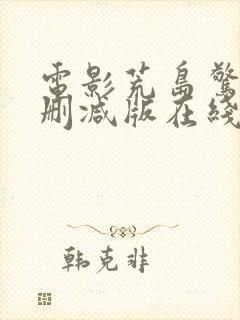 電影荒島驚
刪減版在綫
韩克非